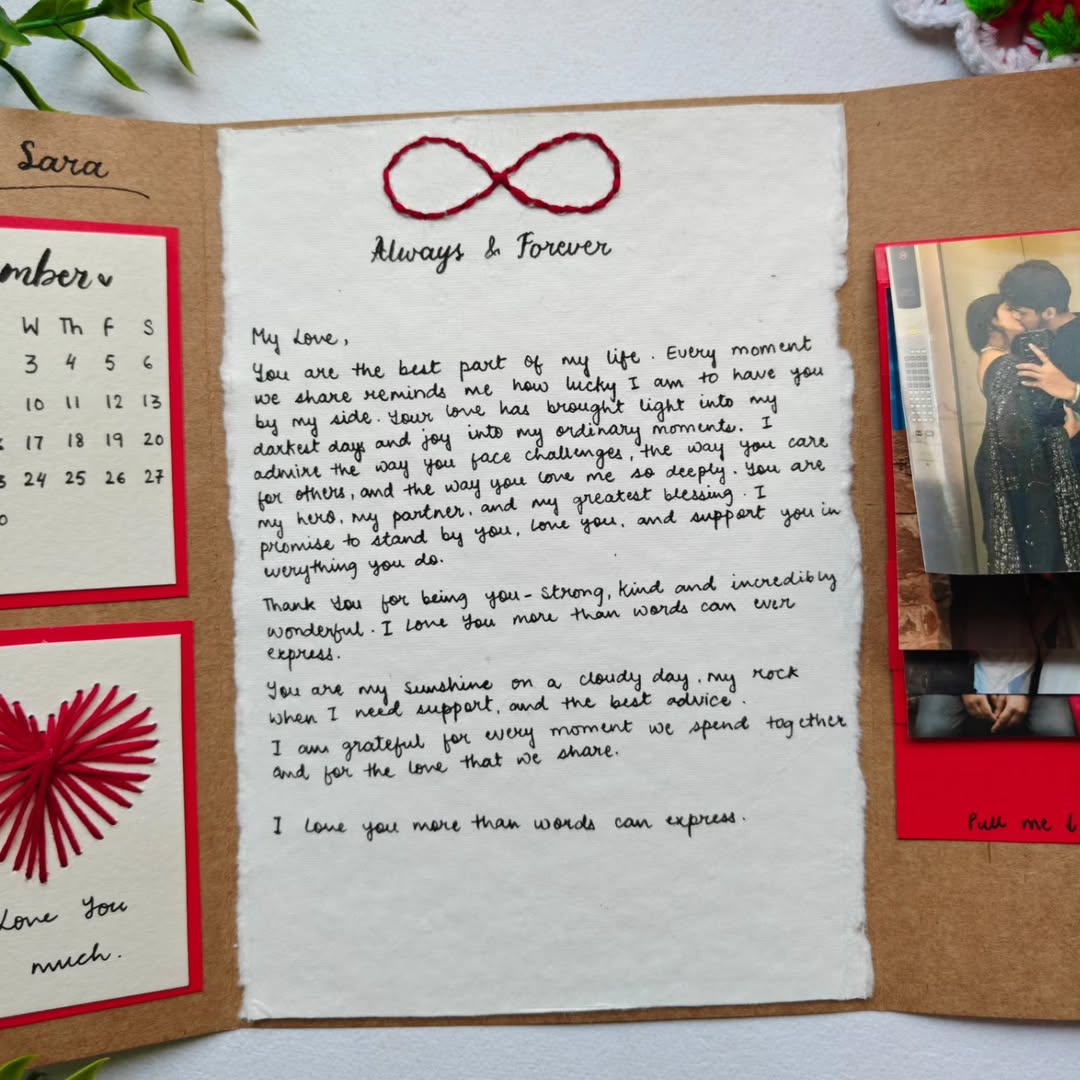 Sara
mber
W Th F S
3 4 5 6
10 11 12 13
17 18 19 20
24 25 26 27
Love You
much.
Always & Forever
My Love,
You are the best part of my life. Every moment
we share reminds me how lucky I am to have you
by my side. Your love has brought light into my
darkest days and joy into my ordinary moments. I
admire the way you face challenges, the way you care
for others, and the way you love me so deeply. You are
my hero, my partner, and my greatest blessing. I
promise to stand by you, love you, and support you in
everything you do.
Thank You for being you - Strong, kind and incredibly
wonderful. I Love You more than words can ever
express.
You are my sunshine on a cloudy day, my rock
when I need support, and the best advice.
I am grateful for every moment we spend together
and for the love that we share.
I love you more than words can express.
Pull me